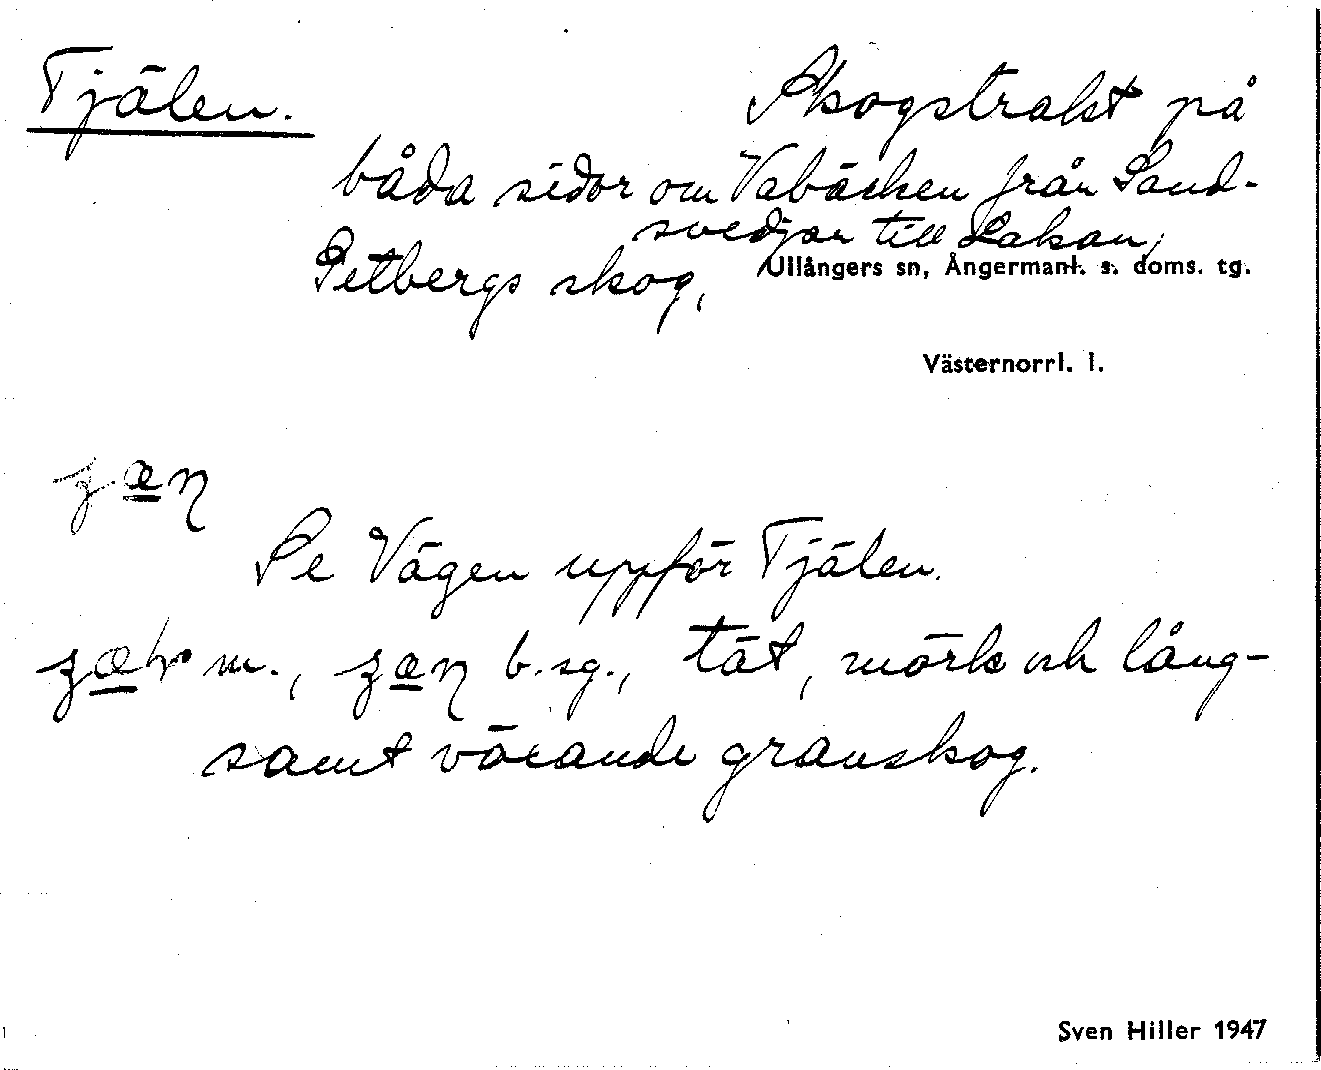 Tjälen.
Skogstrakt på
båda sidor om Vabäcken från Sand-
svedjan till Lakan,
Setbergs skog,
Ullångers sn, Ångermanl. s. doms. tg.
Västernorrl. l.
Se Vägen uppför Tjälen.
m., b. sg., tät, mörk och lång-
samt växande granskog.
Sven Hiller 1947